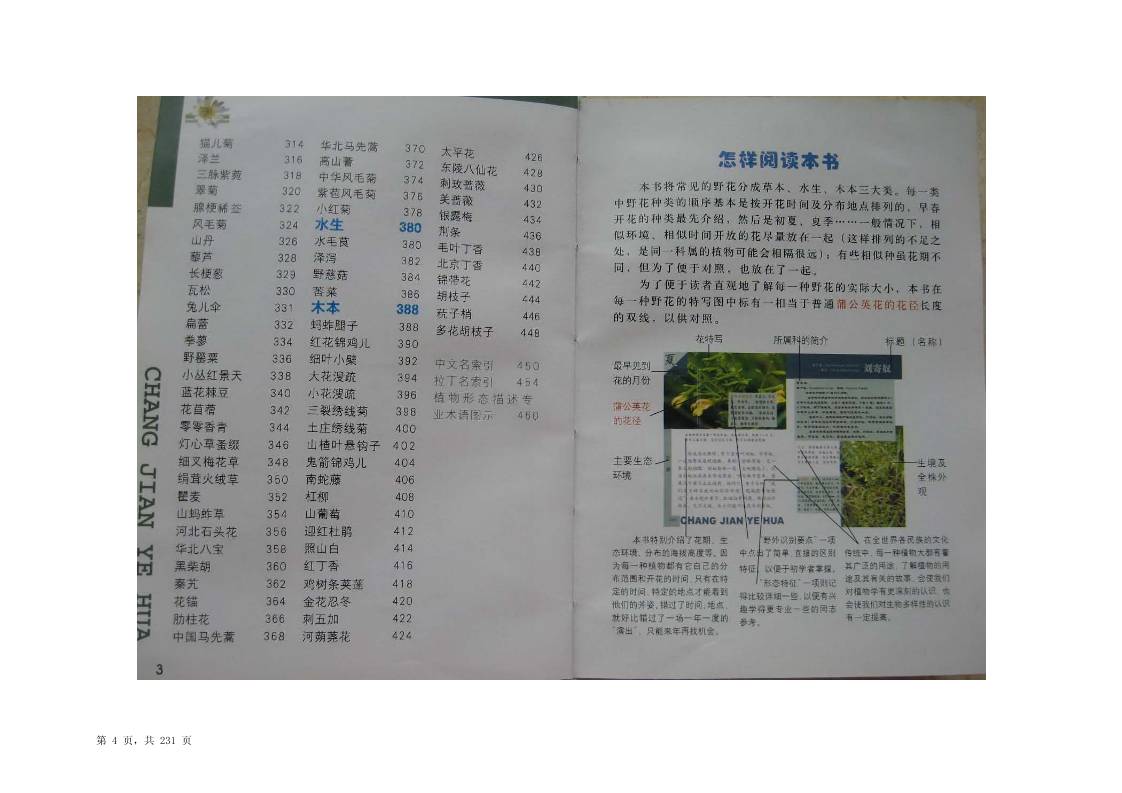 猫儿菊 314
泽兰 316
三脉紫菀 318
翠菊 320
腺梗豨莶 322
风毛菊 324
山丹 326
藜芦 328
长梗葱 329
瓦松 330
兔儿伞 331
扁蕾 332
拳蓼 334
野罂粟 336
小丛红景天 338
蓝花棘豆 340
花苜蓿 342
零零香青 344
灯心草蚤缀 346
细叉梅花草 348
绢茸火绒草 350
瞿麦 352
山蚂蚱草 354
河北石头花 356
华北八宝 358
黑柴胡 360
秦艽 362
花锚 364
肋柱花 366
中国马先蒿 368
华北马先蒿 370
高山蓍 372
中华风毛菊 374
紫苞风毛菊 376
小红菊 378
水生 380
水毛茛 380
泽泻 382
野慈菇 384
荇菜 386
木本 388
蚂蚱腿子 388
红花锦鸡儿 390
细叶小檗 392
大花溲疏 394
小花溲疏 396
三裂绣线菊 398
土庄绣线菊 400
山楂叶悬钩子 402
鬼箭锦鸡儿 404
南蛇藤 406
杠柳 408
山葡萄 410
迎红杜鹃 412
照山白 414
红丁香 416
鸡树条荚蒾 418
金花忍冬 420
刺五加 422
河蒴荛花 424
太平花 426
东陵八仙花 428
刺玫蔷薇 430
美蔷薇 432
银露梅 434
荆条 436
毛叶丁香 438
北京丁香 440
锦带花 442
胡枝子 444
杭子梢 446
多花胡枝子 448
中文名索引 450
拉丁名索引 454
植物形态描述专
业术语图示 460
CHANG JIAN YE HUA
3
怎样阅读本书
本书将常见的野花分成草本、水生、木本三大类。每一类
中野花种类的顺序基本是按开花时间及分布地点排列的，早春
开花的种类最先介绍，然后是初夏、夏季……一般情况下，相
似环境、相似时间开放的花尽量放在一起（这样排列的不足之
处，是同一科属的植物可能会相隔很远）；有些相似种虽花期不
同，但为了便于对照，也放在了一起。
为了便于读者直观地了解每一种野花的实际大小，本书在
每一种野花的特写图中标有一相当于普通蒲公英花的花径长度
的双线，以供对照。
花特写
所属科的简介
标题（名称）
最早见到
花的月份
夏
刘寄奴
蒲公英花
的花径
主要生态
环境
生境及
全株外
观
CHANG JIAN YE HUA
本书特别介绍了花期、生
态环境、分布的海拔高度等。因
为每一种植物都有它自己的分
布范围和开花的时间，只有在特
定的时间、特定的地点才能看到
他们的芳姿，错过了时间、地点，
就好比错过了一场一年一度的
“演出”，只能来年再找机会。
“野外识别要点”一项
中点出了简单、直接的区别
特征，以便于初学者掌握。
“形态特征”一项则记
得比较详细一些，以便有兴
趣学得更专业一些的同志
参考。
在全世界各民族的文化
传统中，每一种植物大都有着
其广泛的用途，了解植物的用
途及其有关的故事，会使我们
对植物学有更深刻的认识，也
会使我们对生物多样性的认识
有一定提高。
第 4 页，共 231 页